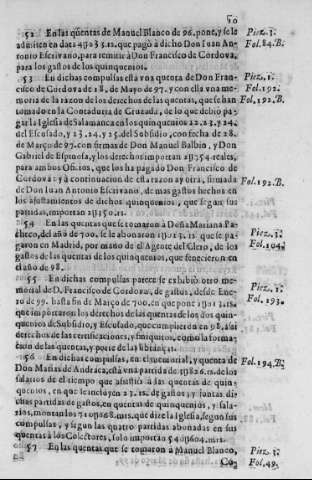 10
52 En las quentas de Manuel Blanco de 96. pont, y se le
admiten en data 4 p 0 3 5 12. que pagò à dicho Don Iuan An-
tonio Escrivano, para remitir à Don Francisco de Cordova,
para los gastos de los quinquenios.
Piez. 3.
Fol. 84. B.
53 En dichas compulsas està vna quenta de Don Fran-
cisco de Cordova de 18. de Mayo de 97. y con ella vna me-
moria de la razon de los derechos de las quentas, que se han
tomado en la Contaduria de Cruzada, de lo que debiò pa-
gar la Iglesia de Salamanca en los quinquenios 22. 23. y 24.
del Escusado, y 23. 24. y 25. del Subsidio, con fecha de 28.
de Março de 97. con firmas de Don Manuel Balbin, y Don
Gabriel de Espinosa, y los derechos importan 2 354 reales,
para ambos Oficios, que los ha pagado Don Francisco de
Cordova: y à continuacion de esta razon ay otra, firmada
de Don Iuan Antonio Escrivano, de mas gastos hechos en
los ajustamientos de dichos quinquenios, que segun sus
partidas, importan
Piez. 1.
Fol. 192.
Fol. 192. B.
Fol. 192. B.
54 En las quentas que se tomaron à Doña Mariana Pa-
checo, del año de 700. se le abonaron que se pa-
garon en Madrid, por mano del Agente del Clero, de los
gastos de las quentas de los quinquenios, que fenecieron en
el año de 98.
Piez. 3.
Fol. 104.
55 En dichas compulsas parece se exhibiò otro me-
morial de D. Francisco de Cordova, de gastos, desde Ene-
ro de 99. hasta fin de Março de 700. en que pone
que importaron los derechos de las quentas de los dos quin-
quenios de Subsidio, y Escusado, que cumplieron en 98. assi
derechos de las certificaciones, y finiquitos, como la forma-
cion de las quentas, y porte de las libranças.
Piez. 1.
Fol. 193.
56 En dichas compulsas, en el memorial, y quenta de
Don Matias de Andraca, està vna partida de de los
salarios de el tiempo que assistiò à las quentas de quin-
quenios, en que se incluyen de gastos, de y tantas
dichas partidas de gastos, en quentas de quinquenios, y sala-
rios, montan los que dize la Iglesia, segun sus
compulsas, y segun las quatro partidas abonadas en sus
quentas à los Colectores, solo importan
Fol. 194. B.
57 En las quentas que se tomaron à Manuel Blanco,
Co-
Piez. 3.
Fol. 49.